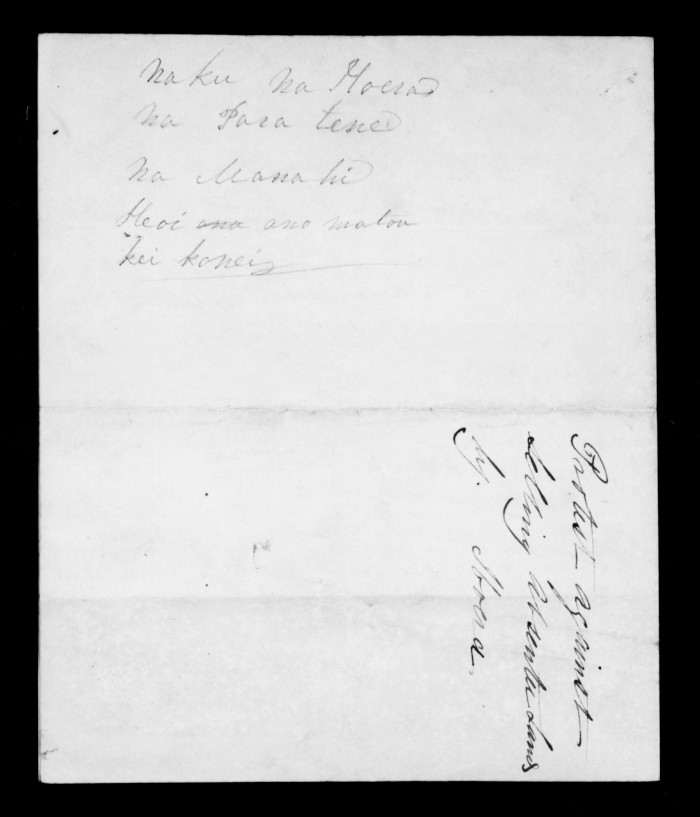 naku na Hoera
na Para tene
na Manahi
Heoi ana ano matou
kei konei
Protest against
selling absentee Lands
by. Hoera.